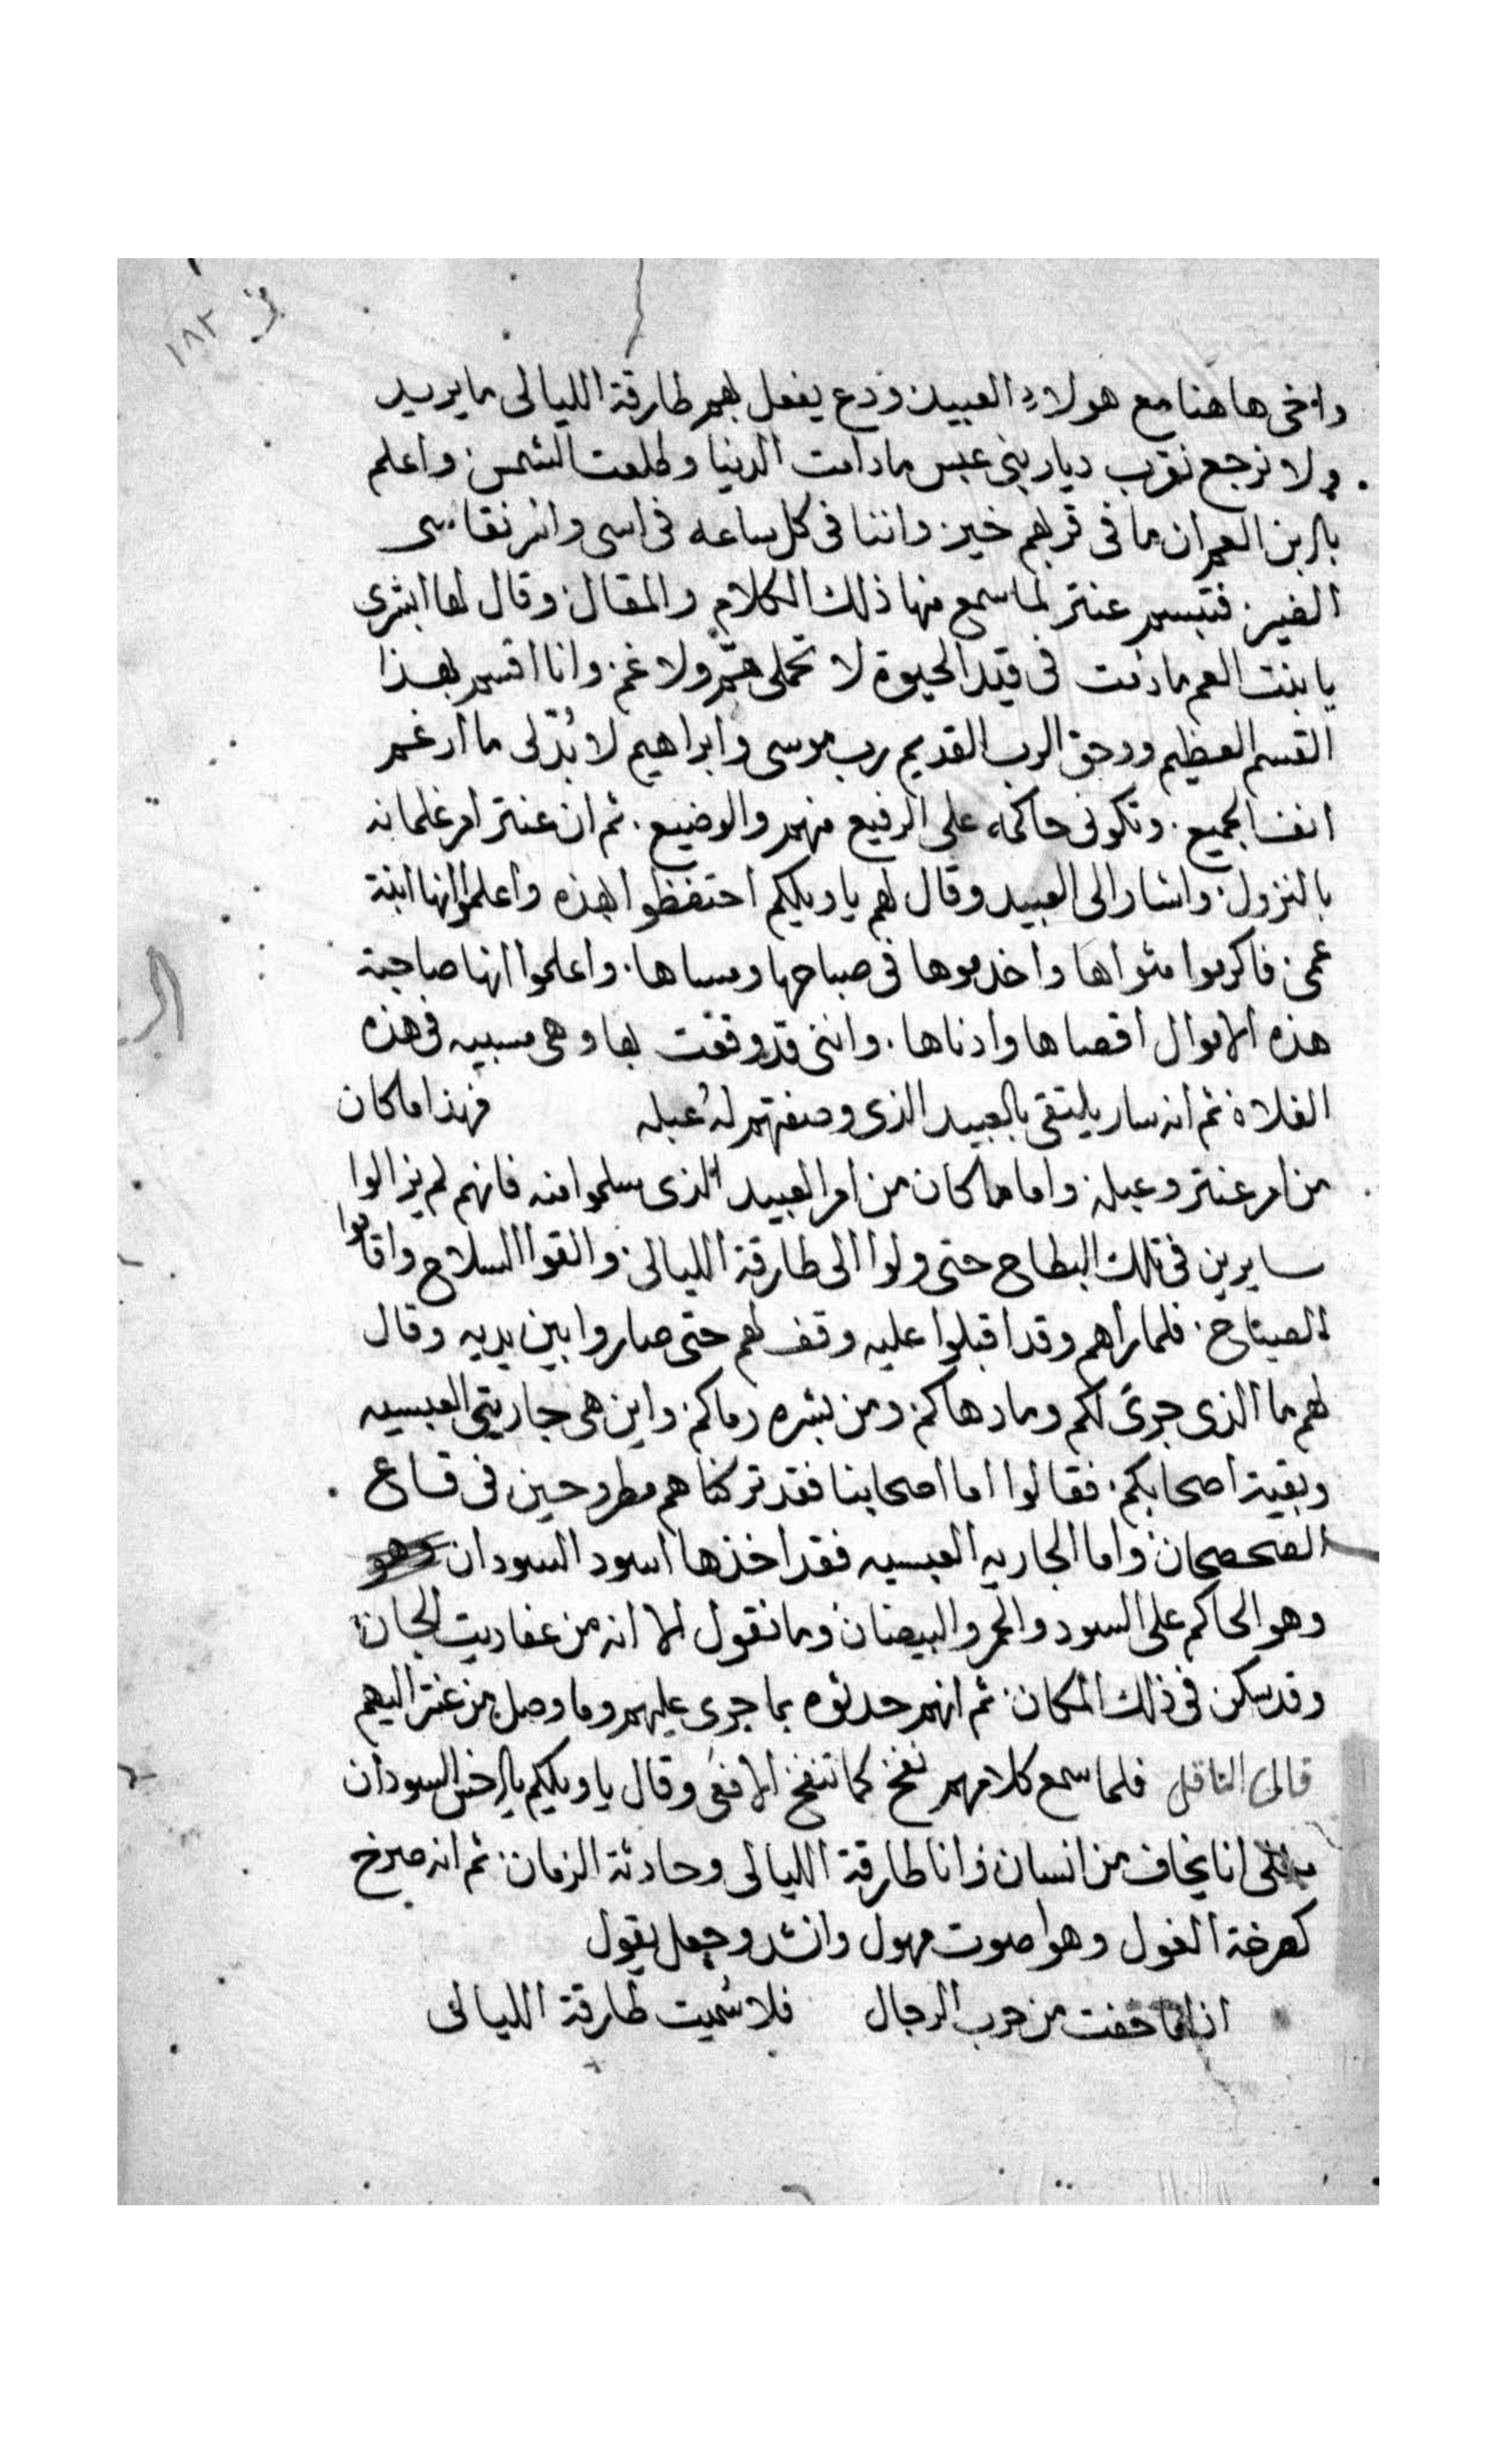 ق ١٨٢
وامخي هاهنا مع هولاءِ العبيد ودع يفعل بهم طارقة الليالى ما يريد
ولا نرجع نقرب ديار بنى عبس مادامت الدنيا وطلعت الشمس واعلم
يا ابن العم ان ما فى قربهم خير واننا فى كل ساعه فى اسى وانر نقاسى
الضير فتبسم عنتر لما سمع منها ذلك الكلام والمقال وقال لها ابشرى
يا بنت العم مادمت فى قيد الحيوة لا تحملى هّم ولا غم وانا اقسم بهذا
القسم العظيم ووحق الرب القديم رب موسى وابراهيم لا بُدّ لى ما ارغم
انف الجميع وتكونى حاكمه على الرفيع منهم والوضيع ثم ان عنتر امر غلمانه
بالنزول واشار الى العبيد وقال لهم يا ويلكم احتفظوا بهذه واعلموا انها ابنة
عمى فاكرموا مثواها واخدموها فى صباحها ومساها واعلموا انها صاحبة
هذه الاموال اقصاها وادناها واننى قد وقعت بها وهى مسبيه فى هذه
الفلاة ثم انه سار يلتقى بالعبيد الذى وصفتهم له عبله فهذا ما كان
من امر عنتر وعبله واما ما كان من امر العبيد الذى سلموا منه فانهم لم يزالوا
سايرين فى تلك البطاح حتى ولوا الى طارقة الليالى والقوا السلاح واقاموا
الصياح فلما راهم وقد اقبلوا عليه وقف لهم حتى صاروا بين يديه وقال
لهم ما الذى جرى لكم وما دهاكم ومن بشره رماكم واين هى جاريتى العبسيه
وبقية اصحابكم فقالوا اما اصحابنا فقد تركناهم مطروحين فى قاع
الصحصحان واما الجاريه العبسيه فقد اخذها اسود السودان
وهو الحاكم على السود والحمر والبيضان وما نقول الا انه من عفاريت الجان
وقد سكن فى ذلك المكان ثم انهم حدثوه بما جرى عليهم وما وصل من عنتر اليهم
قال الناقل فلما سمع كلامهم نفخ كما تنفخ الافعى وقال يا ويلكم يا ارخس السودان
مثلى انا يخاف من انسان وانا طارقة الليالى وحادثة الزمان ثم انه صرخ
كصرخة الغول وهو اصوت مهول وانشد وجعل يقول
اذا ما خفت من حرب الرجال فلا سُميت طارقة الليالى